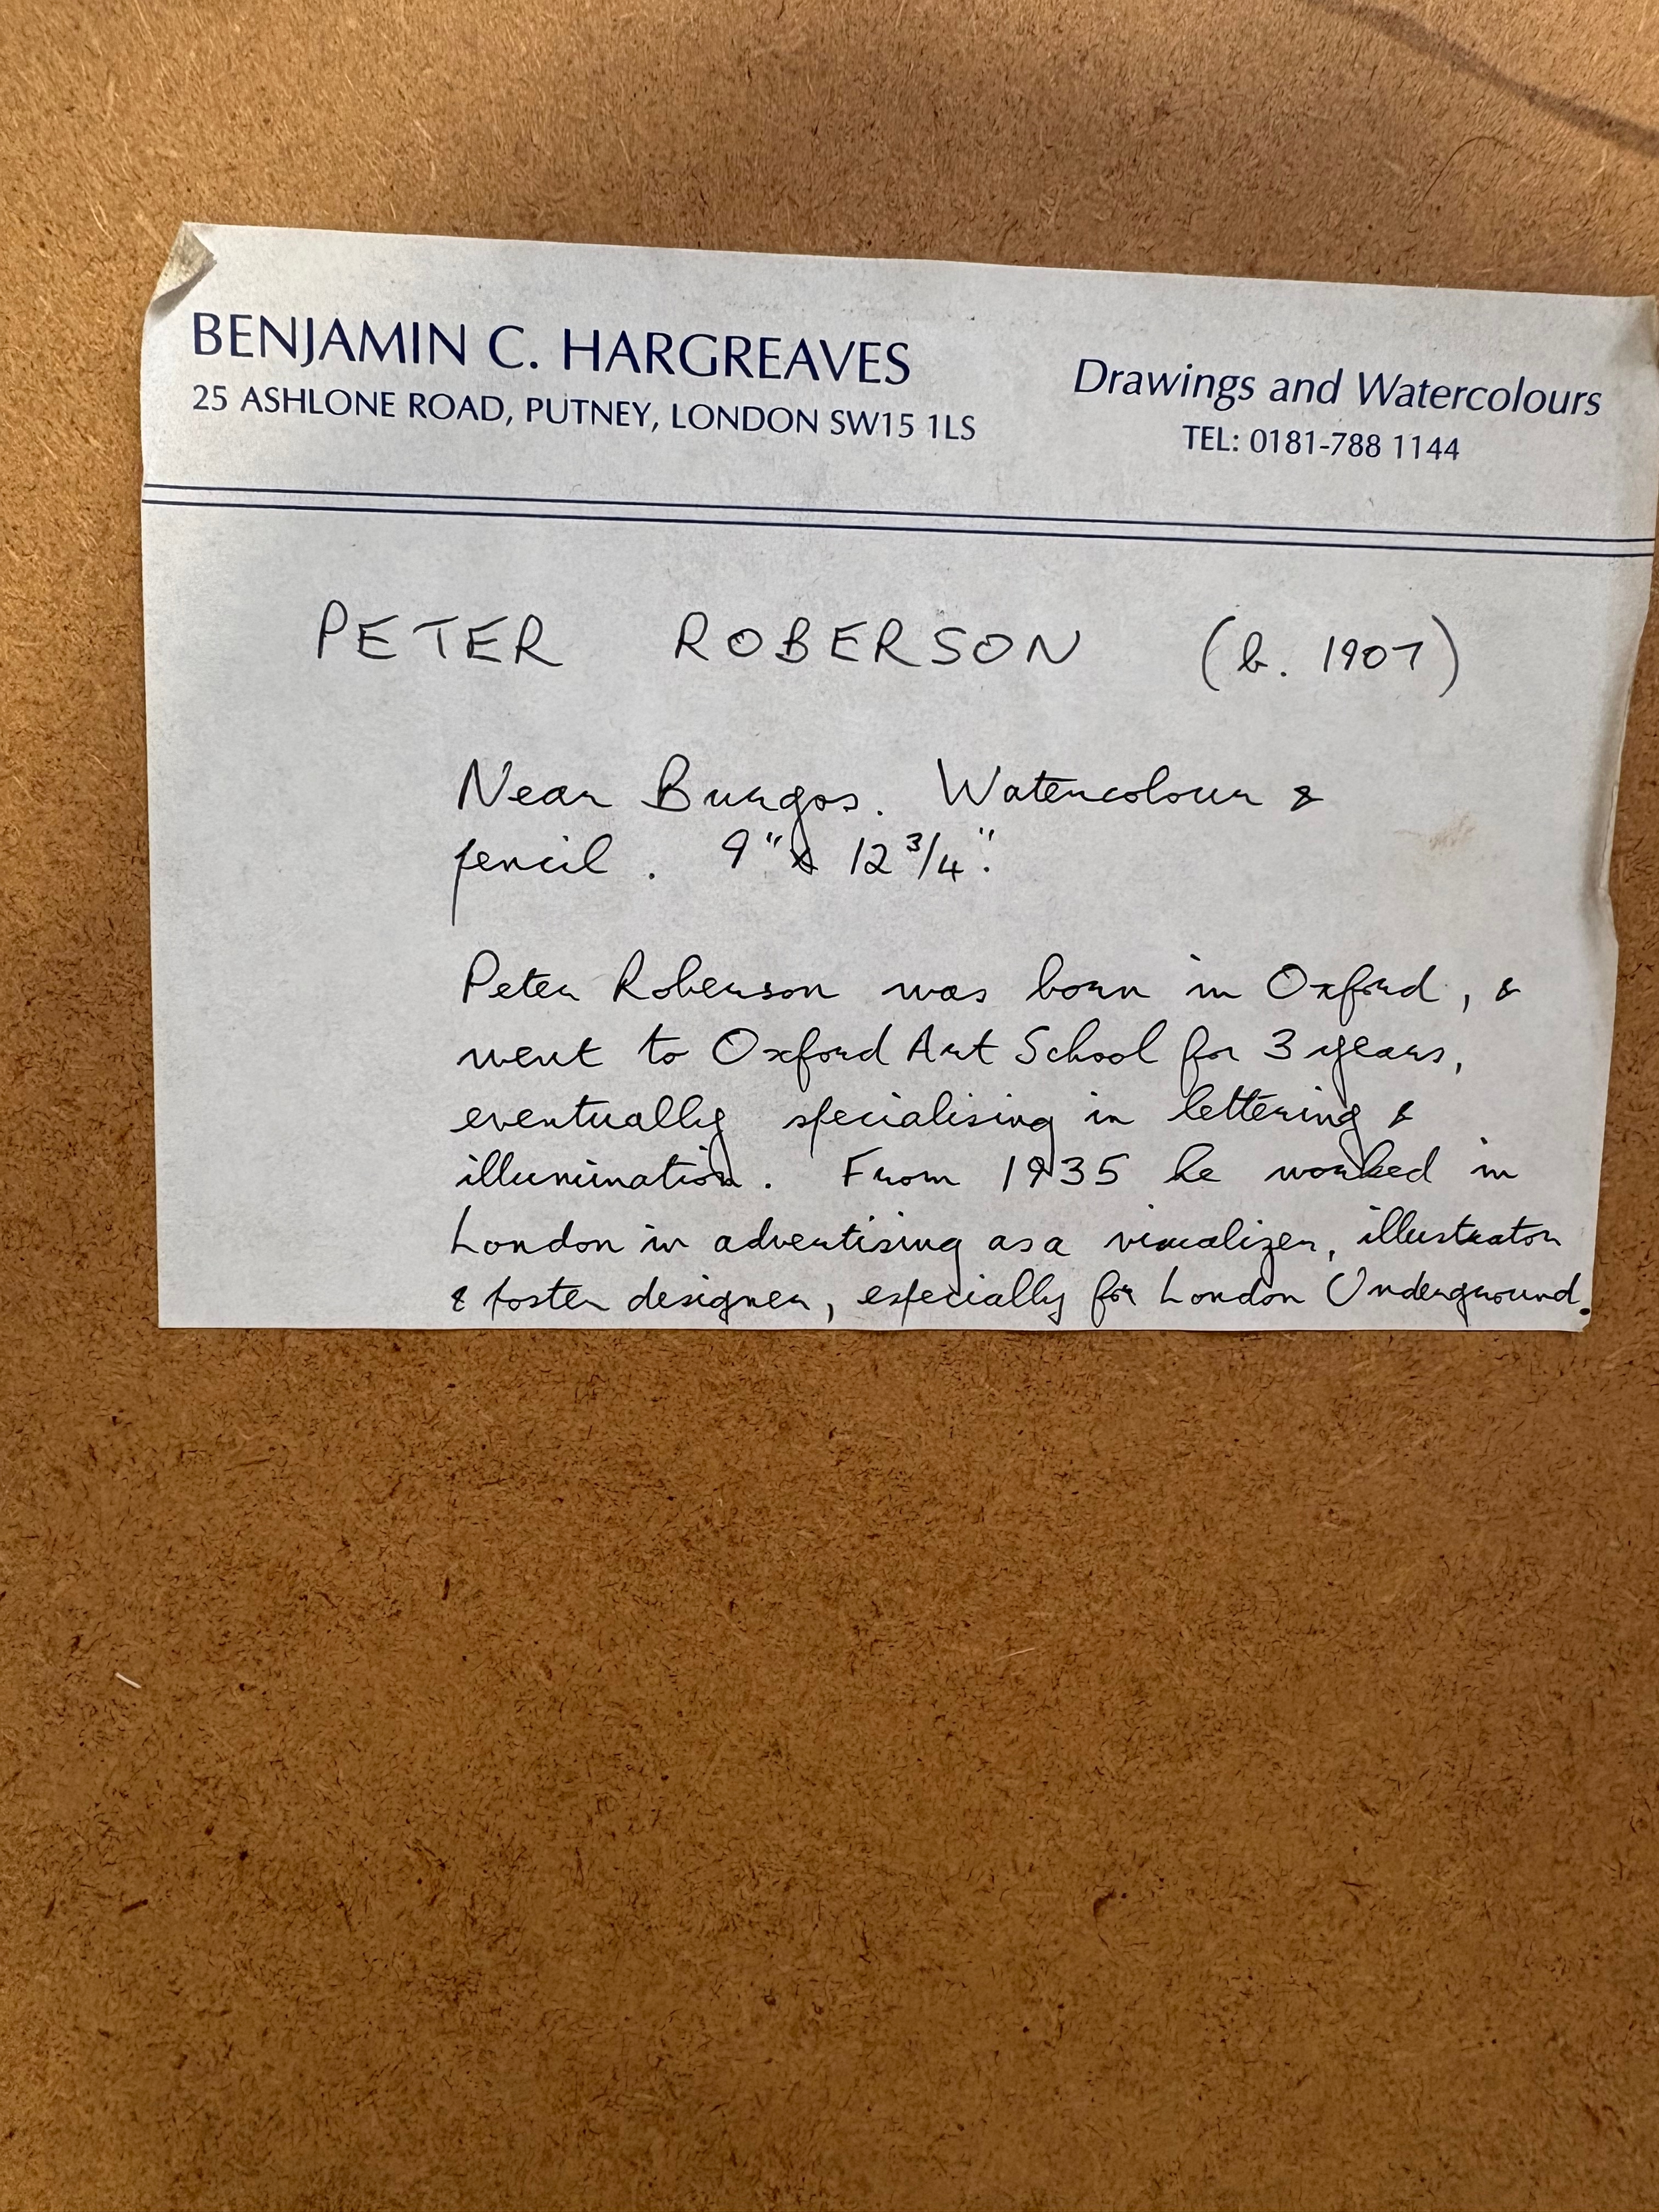 BENJAMIN C. HARGREAVES
25 ASHLONE ROAD, PUTNEY, LONDON SW15 1LS
Drawings and Watercolours
TEL: 0181-788 1144
PETER ROBERSON (b. 1907)
Near Burgos. Watercolour &
pencil. 9" x 12 3/4".
Peter Roberson was born in Oxford, &
went to Oxford Art School for 3 years,
eventually specialising in lettering &
illumination. From 1935 he worked in
London in advertising as a visualizer, illustrator
& poster designer, especially for London Underground.